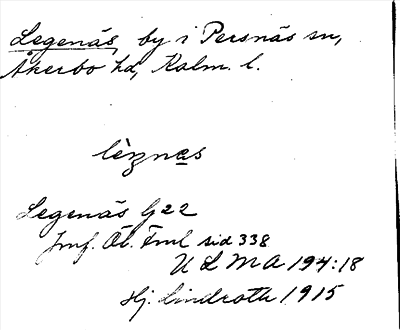 Legenäs, by i Persnäs sn,
Åkerbo hd, Kalm. l.
lèznes
Legenäs G22
Jmf. Öl. Fml sid 338
ULMA 194:18
Hj. Lindroth 1915